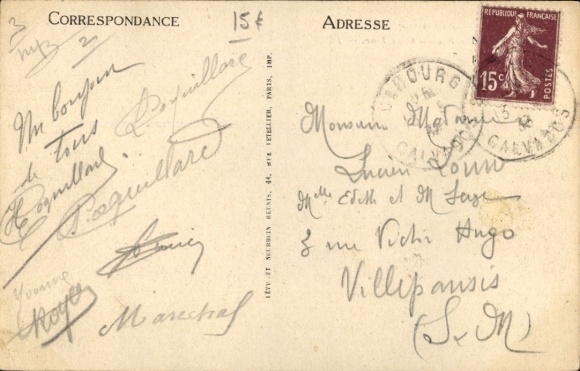 CORRESPONDANCE
15 F
ADRESSE
Un bonjour
de tous
Coquillard
Coquillard
Coquillard
Yvonne
Marechal
LÉVY ET NEURDEIN RÉUNIS, 44, RUE LETELLIER, PARIS, IMP.
REPUBLIQUE FRANÇAISE
15c
POSTES
CABOURG
CALVADOS
CALVADOS
Monsieur Madame
Lucien
Melle Edith et M Serge
3 rue Victor Hugo
Villeparisis
(S. M)